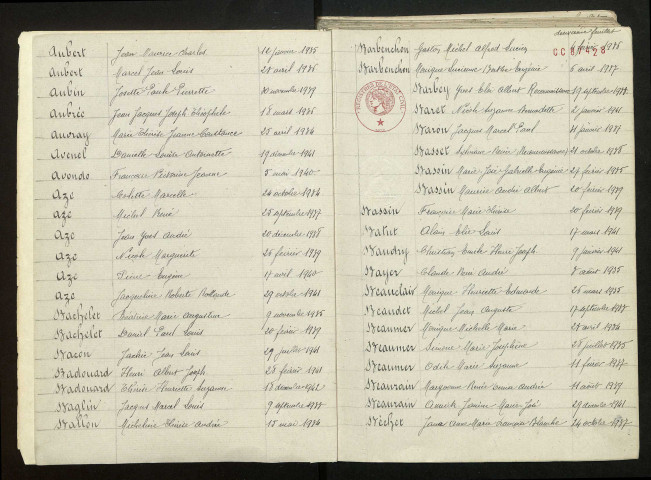 Aubert Jean Maurice Charles 10 janvier 1935
Aubert Marcel Jean Louis 21 avril 1936
Aubin Josette Paule Pierrette 30 novembre 1939
Aubrée Jean Jacques Joseph Théophile 18 mars 1936
Auvray Marie Thérèse Jeanne Constance 25 avril 1936
Avenel Danielle Louise Antoinette 19 décembre 1941
Avondo Jeanne 5 mai 1940
Aze Colette Marcelle 24 octobre 1934
Aze Michel René 25 septembre 1937
Aze Jean Yves André 20 décembre 1938
Aze Nicole Marguerite 26 février 1939
Aze Eugène 19 avril 1940
Aze Jacqueline Roberte Rolande 29 octobre 1941
Bachelet Marie Augustine 9 novembre 1935
Bachelet Daniel Paul Louis 20 février 1939
Bacon Jackie Jean Louis 29 juillet 1941
Badouard Henri Albert Joseph 28 février 1941
Badouard Henriette Suzanne 18 décembre 1942
Baglin Jacques Marcel Louis 9 septembre 1937
Ballon Micheline Andrée 15 mai 1934
deuxième feuillet
Barbenchon Gaston Michel Alfred Lucien février 1936
Barbenchon Monique Lucienne Berthe Eugénie 5 avril 1937
Barbey Yves Elie Albert 17 septembre 1938
Baret Nicole Suzanne Bernadette 2 janvier 1941
Baron Jacques Marcel Paul 11 janvier 1937
Basset 21 octobre 1938
Bassin Marie José Gabrielle 27 février 1935
Bassin Maurice André Albert 20 février 1939
Bassin Françoise Marie Louise 20 février 1939
Batut Alain Elie Louis 17 mars 1941
Baudry Christian Emile Pierre Joseph 9 janvier 1941
Bayer Claude André 8 août 1935
Beauclair Monique Henriette Edmonde 25 mars 1935
Beaudet Michel Jean Auguste 17 septembre 1937
Beaumer Monique Michelle Marie 27 avril 1934
Beaumer Simone Marie Joséphine 28 juillet 1935
Beaumer Odile Marie Suzanne 11 février 1937
Beaurain Marganne Renée 11 août 1939
Beaurain Annick Janine 29 décembre 1941
Béchet Anne Marie Françoise Blanche 24 octobre 1937